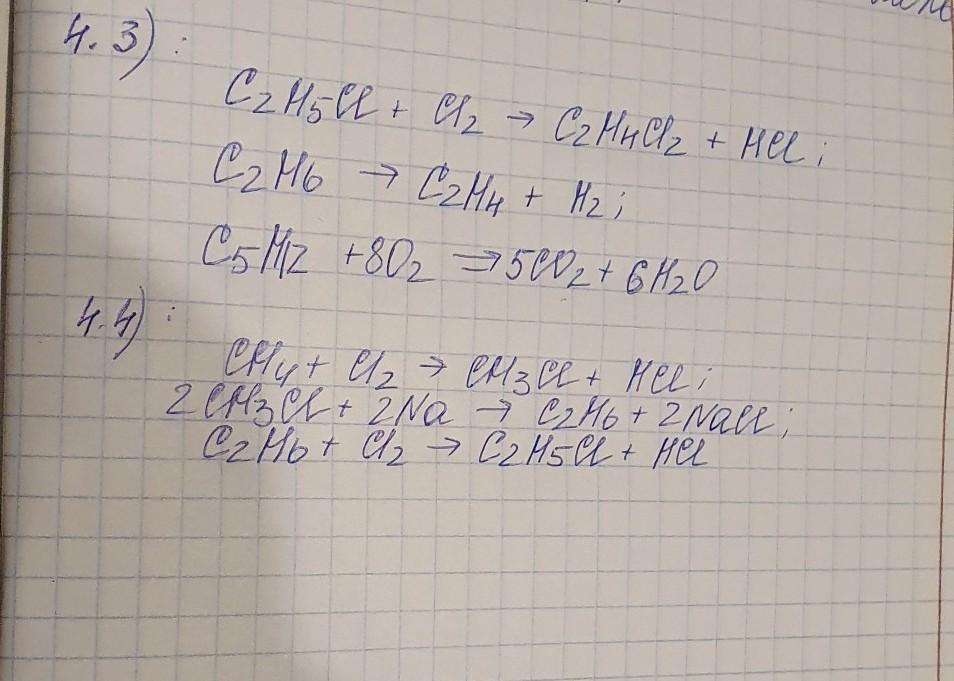 4.3) :
C2H5Cl + Cl2 → C2H4Cl2 + HCl ;
C2H6 → C2H4 + H2 ;
C5H12 + 8O2 → 5CO2 + 6H2O
4.4) :
CH4 + Cl2 → CH3Cl + HCl ;
2CH3Cl + 2Na → C2H6 + 2NaCl ;
C2H6 + Cl2 → C2H5Cl + HCl